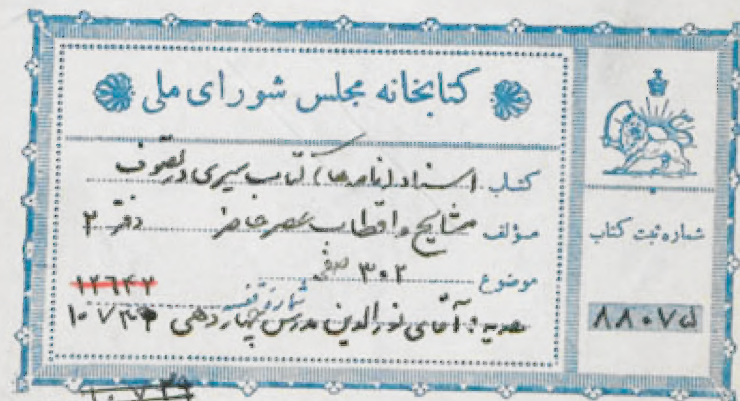 کتابخانه مجلس شورای ملی
کتاب اسناد (نامه ها) کتاب سیری در تصوف
مؤلف مشایخ و اقطاب عصر حاضر دفتر ۲
موضوع ۳۰۲ صفحه
شماره قفسه ۱۲۶۴۲
هدیه: آقای نورالدین مدرسی چهاردهی ۱۰۷۳۴
شماره ثبت کتاب
۸۸۰۷۵